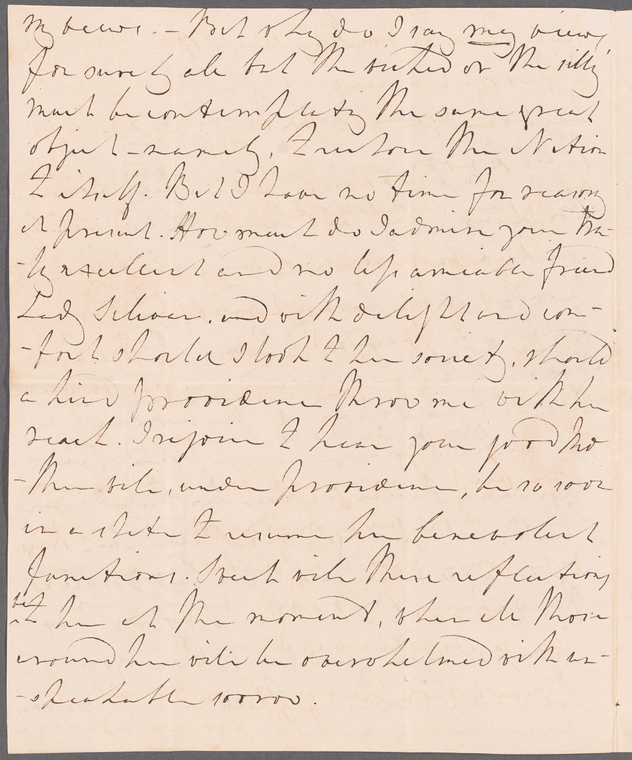 my views. – But why do I say my views,
for surely all but the wicked or the silly
must be contemplating the same great
object – namely, to restore the Nation
to itself. But I have no time for reasons
at present. How much do I admire your tru-
-ly excellent and no less amiable friend
Lady and with delight and com-
-fort should I look to her society, should
a kind providence throw me with her
reach. I rejoice to hear your good Mo-
-ther will, under providence, be so soon
in a state to resume her benevolent
functions. Sweet will these reflections
be to her at the moment, when all those
around her will be overwhelmed with un-
-speakable sorrow.